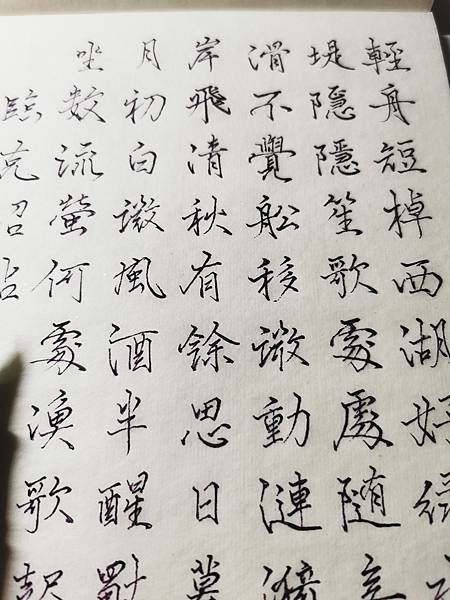 輕舟短棹西湖好綠
堤隱隱笙歌處處隨無
滑不覺舩移微動漣漪
岸飛清秋有餘思日莫
月初白微風酒半醒獨
坐数流螢何處漁歌
臨